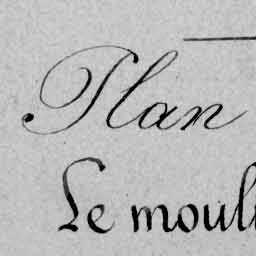 Plan
Le mouli